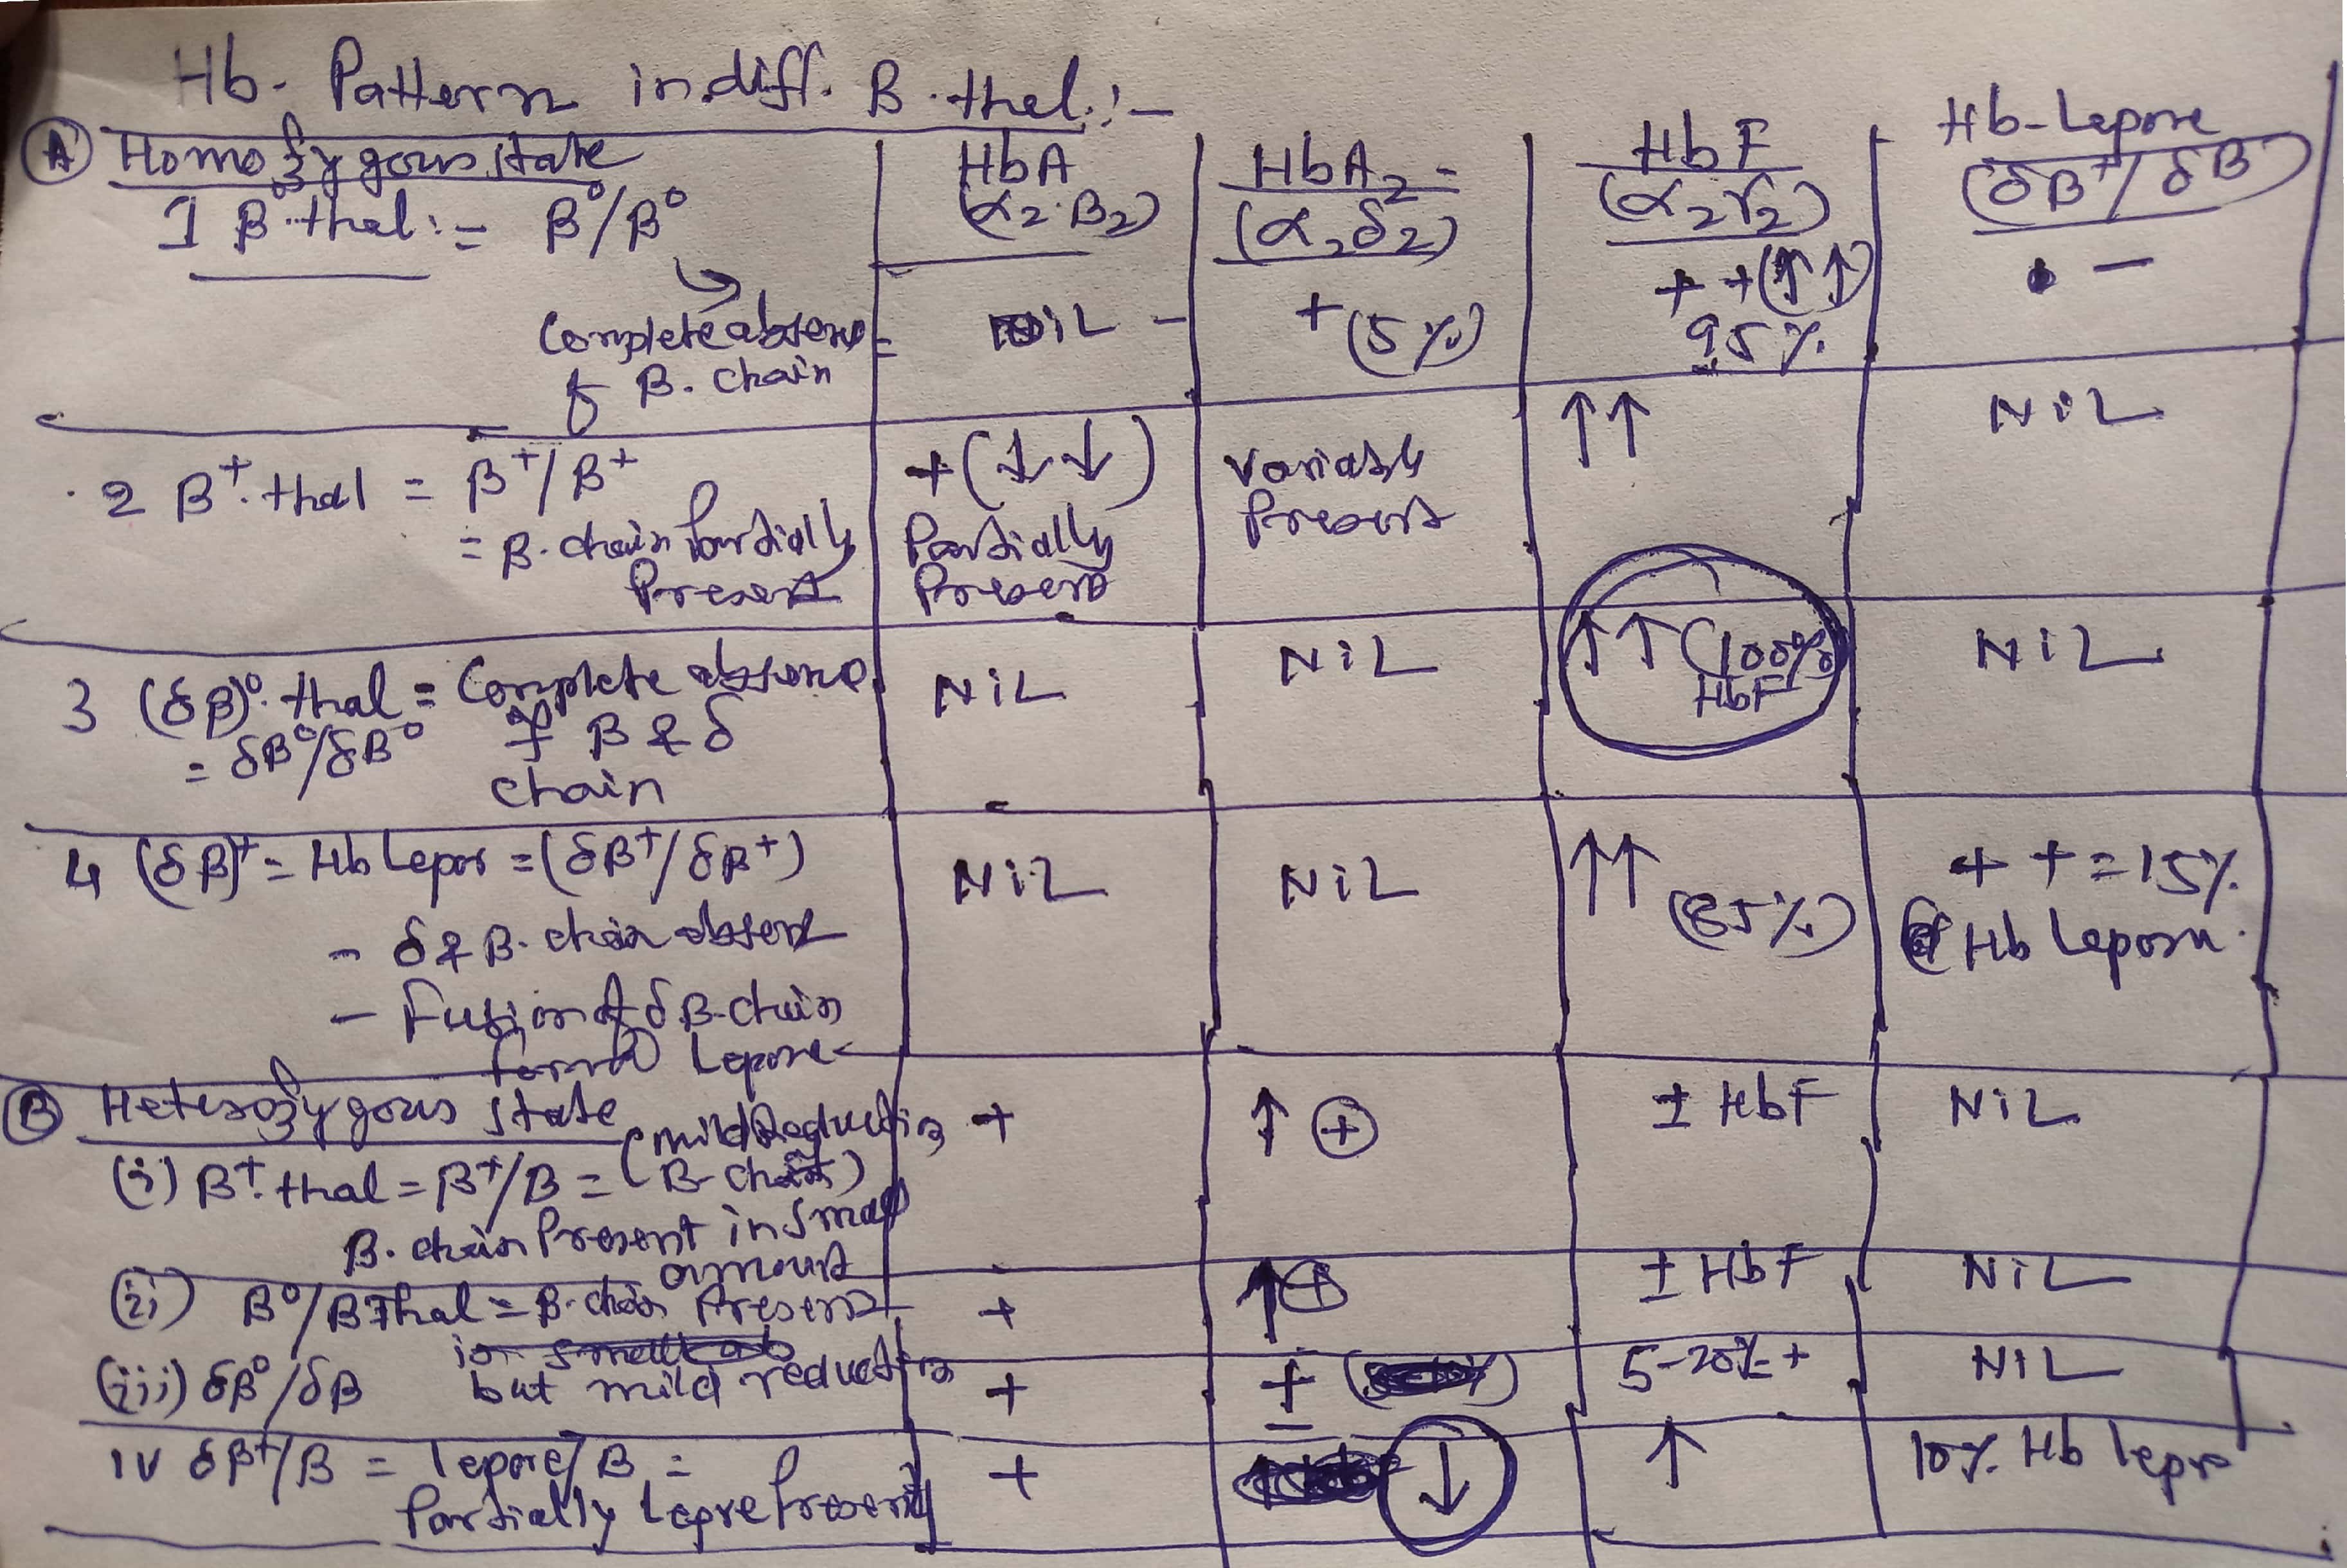 Hb. Pattern in diff. B. thal. :-
(A) Homozygous state
HbA (α2.B2)
HbA2 = (α2δ2)
HbF (α2γ2)
Hb-Lepore (δB+/δB)
1 B° thal := B°/B°
Complete absence of B. chain =
NiL -
+ (5%)
+ + (↑↑) 95%
-
2 B+. thal = B+/B+
= B. chain Partially Present
+ (↓↓) Partially Present
Variably Present
↑↑
NiL
3 (δB)°. thal = Complete absence of B & δ chain
= δB°/δB°
NiL
NiL
↑↑ (100% HbF
NiL
4 (δB)+ = Hb Lepor = (δB+/δB+)
- δ & B. chain absent
- Fusion of δB-chain form Lepore
NiL
NiL
↑↑ (85%)
+ + = 15% Hb Lepore.
(B) Heterozygous state
(i) B+. thal = B+/B = (mild Reduction B-chain)
B. chain Present in small amount
+
↑ ⊕
± HbF
NiL
(ii) B°/B Thal = B-chain Present
but mild reduction
+
↑⊕
± HbF
NiL
(iii) δB°/δB
+
+
5-20% +
NiL
IV δB+/B = lepore/B =
Partially Lepre Present
+
↓
↑
10% Hb lepr